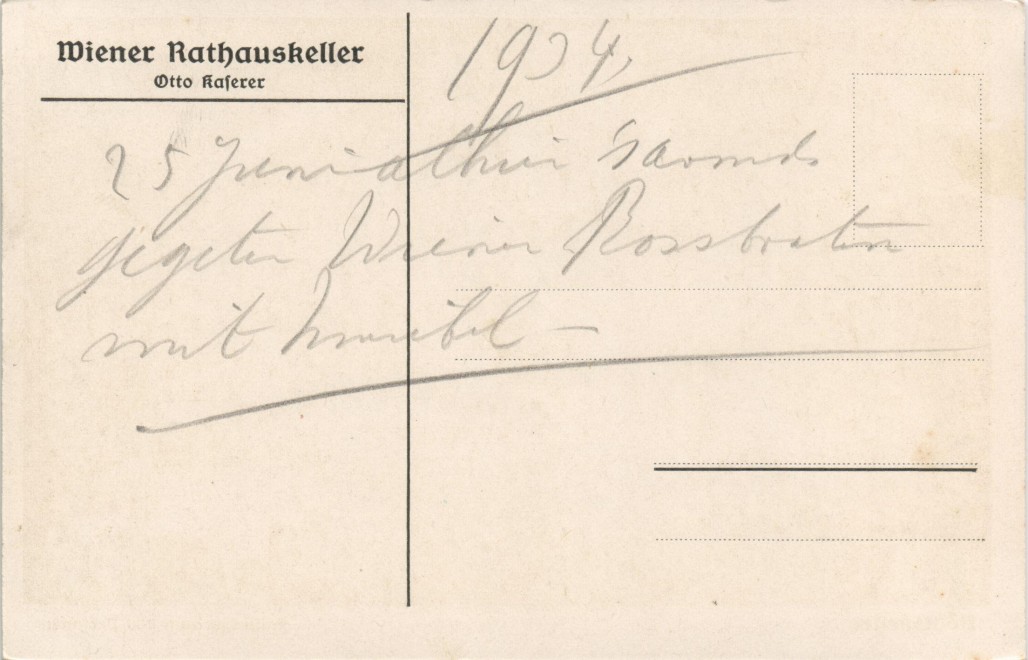 Wiener Rathauskeller
Otto Kaserer
1934
25 Juni hier
gegeten Wiener Rossbraten
mit